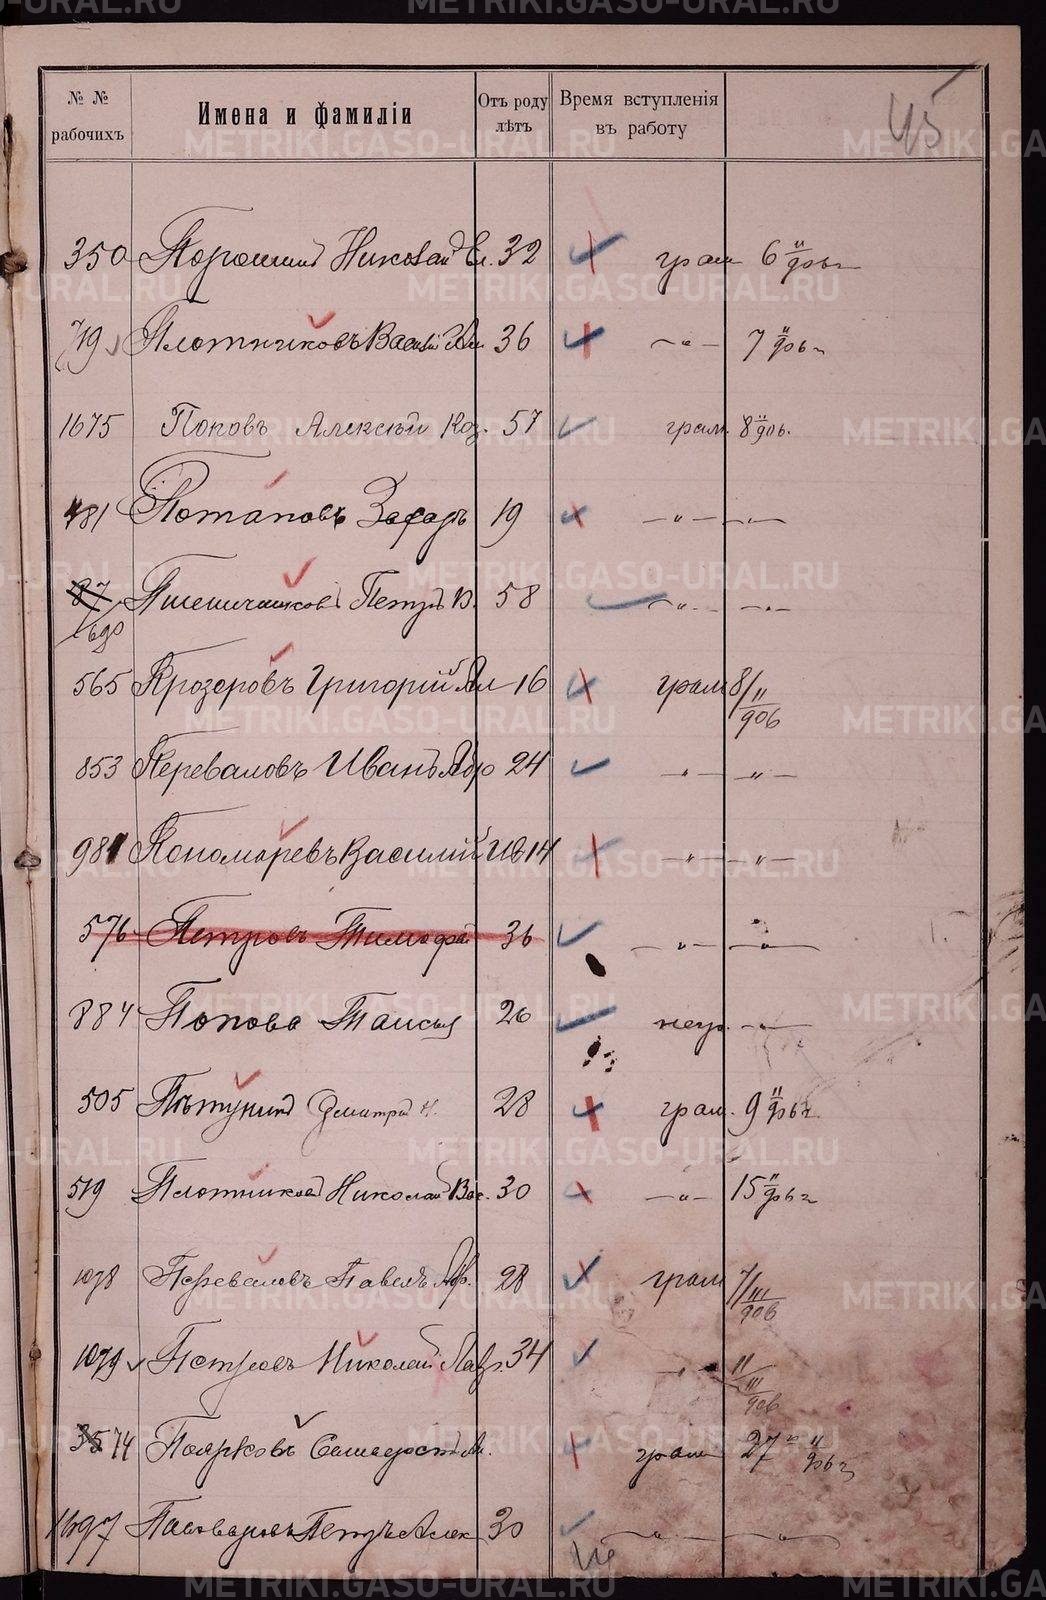 METRIKI.GASO-URAL.RU
№ №
рабочихъ
Имена и фамиліи
Отъ роду
лѣтъ
Время вступленія
въ работу
45
350 Порошинъ Николай Ел. 32 грам 6 II 906 г
719 Плотниковъ Василій 36 —"— 7 II 906 г
1675 Поповъ Алексѣй Коз. 57 грам. 8 II 906.
481 Потаповъ Захаръ 19 —"— —"—
87 Петръ В. 58 —"— —"—
690
565 Прозоровъ Григорій Ал 16 грам 8/II 906
853 Переваловъ Иванъ 24 —"— —"—
981 Пономаревъ Василій Ив 14 —"— —"—
576 Петровъ Тимофей 36 —"— —"—
884 Попова Таисья 26 негр. —"—
505 Пѣтунинъ Дмитрій Н. 28 грам. 9 II 906 г.
519 Плотниковъ Николай Вас. 30 —"— 15 II 906 г
1078 Переваловъ Павелъ 28 грам 7/III 906
1079 Петровъ Николай Лавр. 34 —"— 11 III 906
3574 Поярковъ грам 27 II 906 г
1697 Пивоваровъ Петръ Алек 30 —"— —"—